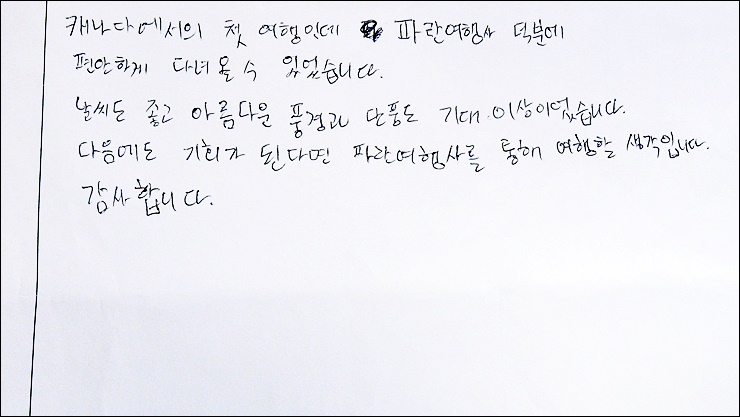 캐나다에서의 첫 여행인데 파란여행사 덕분에
편안하게 다녀올 수 있었습니다.
날씨도 좋고 아름다운 풍경과 단풍도 기대 이상이었습니다.
다음에도 기회가 된다면 파란여행사를 통해 여행할 생각입니다.
감사합니다.